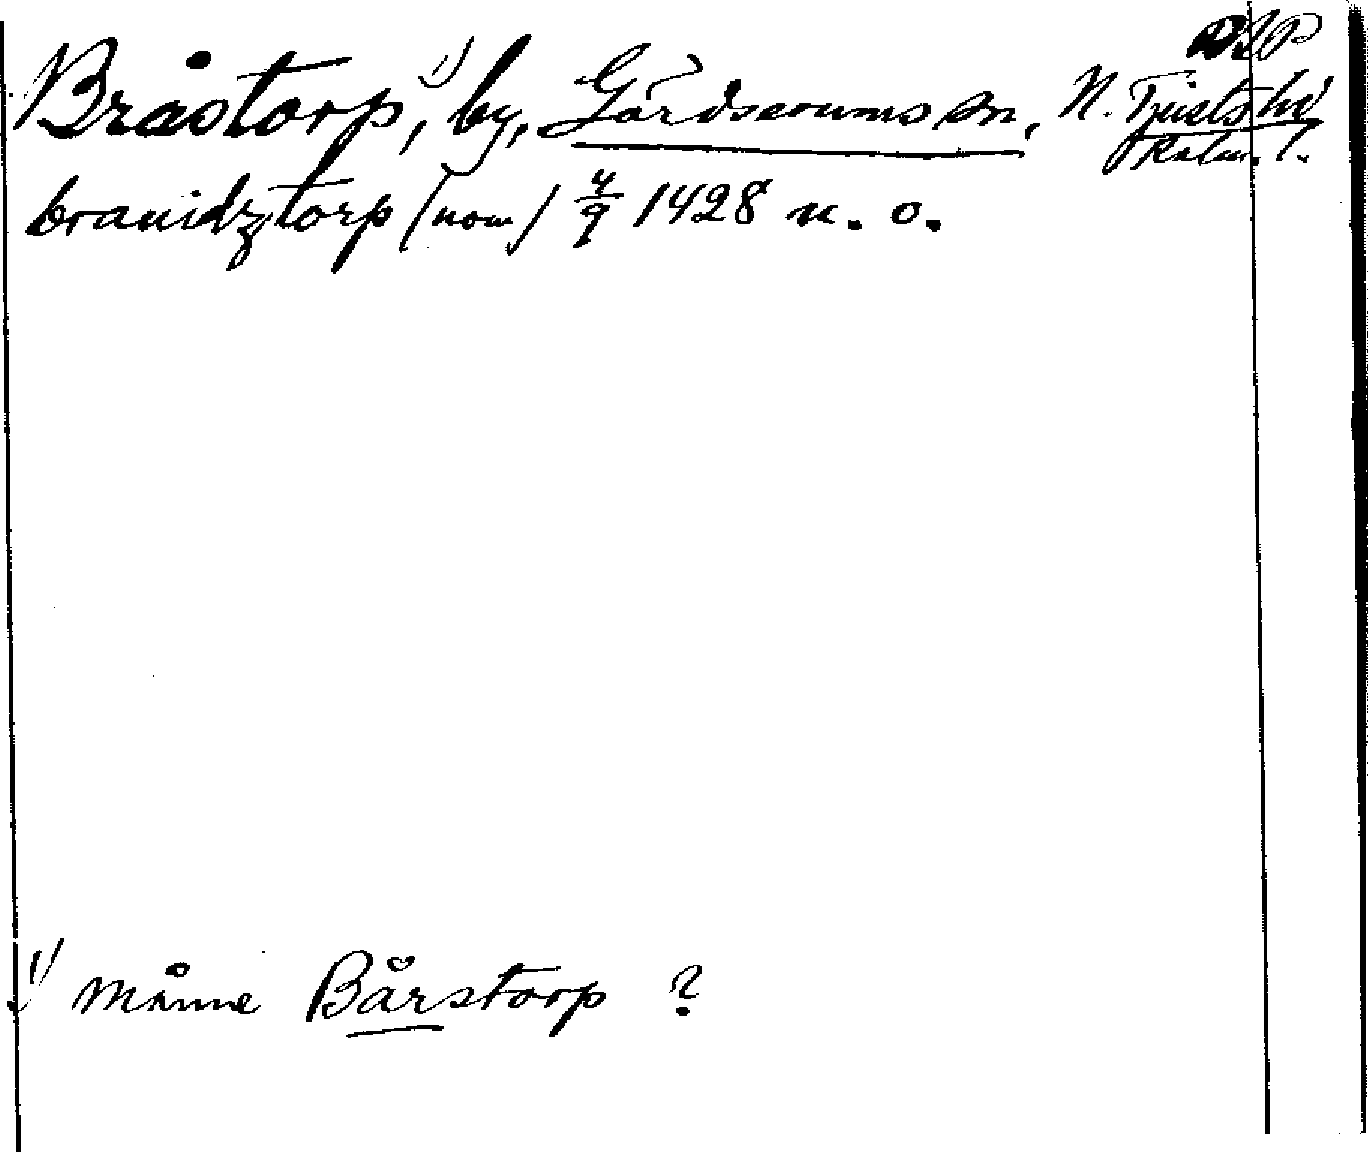 Bråstorp,¹⁾ by, Gärdserums sn, N. Tjusts hd
Kalm. l.
brauidztorp (nom) 4/9 1428 n. o.
¹⁾ månne Bårstorp ?